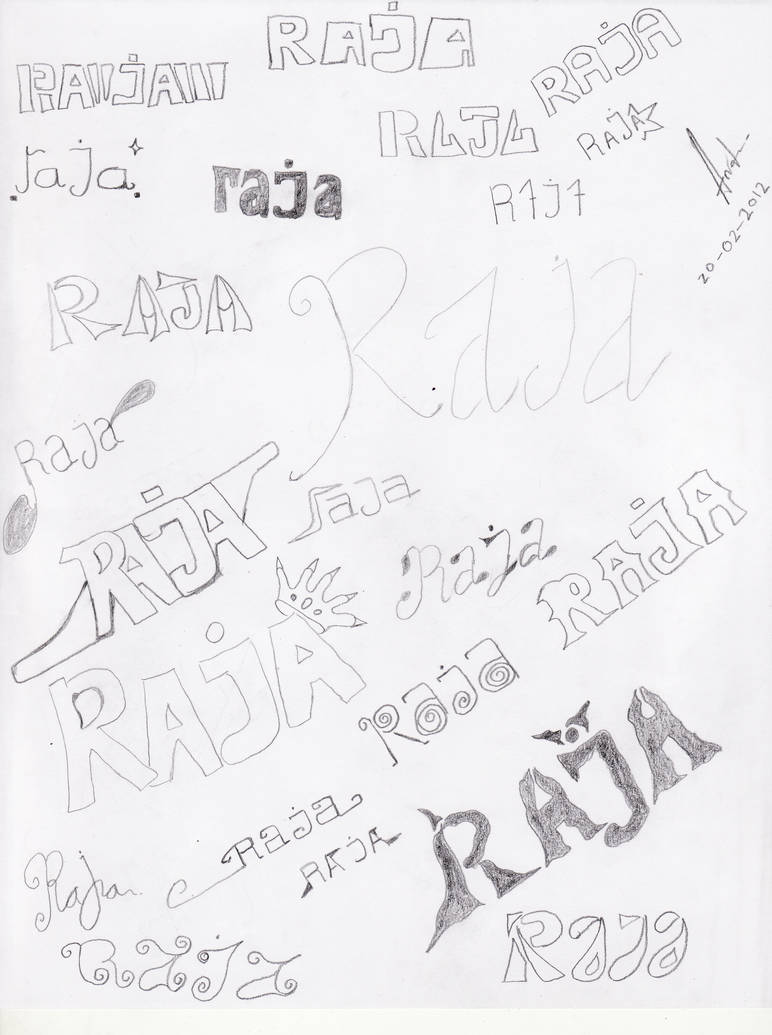 RAJA
RAJA
RAJA
RAJA
RAJA
raja
raja
RAJA
20-02-2012
RAJA
Raja
Raja
raja
RAJA
RAJA
Raja
RAJA
Raja
RAJA
Raja
RAJA
Raja
Raja
RAJA
Raja